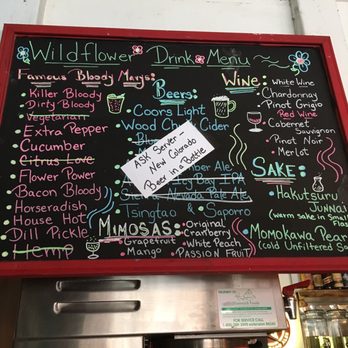 Wildflower Drink Menu
Famous Bloody Marys:
Killer Bloody
Dirty Bloody
Vegetarian
Extra Pepper
Cucumber
Citrus Love
Flower Power
Bacon Bloody
Horseradish
House Hot
Dill Pickle
Hemp
Beers:
Coors Light
Wood Chuck Cider
Blue
ASK Server -
New Colorado
Beer in a Bottle
Amber Ale
Icy Bay IPA
Sierra Nevada Pale Ale
Tsingtao & Saporro
Mimosas:
Original
Cranberry
Grapefruit
White Peach
Mango
Passion Fruit
Wine:
White Wine
Chardonnay
Pinot Grigio
Red Wine
Cabernet
Sauvignon
Pinot Noir
Merlot
Sake:
Hakutsuru
Junmai
(warm sake in Small
Flas
Momokawa Pear
(cold Unfiltered Sa
FOR SERVICE CALL